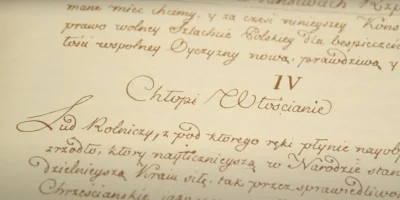 mane mieć chcemy, y za część ninieyszey Kons
prawo wolney Szlachcie Polskiey dla bespiecze
łości wspolney Oyczyzny nową, prawdziwą y
IV
Chłopi Włościanie
Lud Rolniczy, z pod ktorego ręki płynie nayob
zrzodło, ktory nayliczniejszą w Narodzie stan
dzielnieyszą Kraiu siłę, tak przez sprawiedliwo
Chrześcianskie